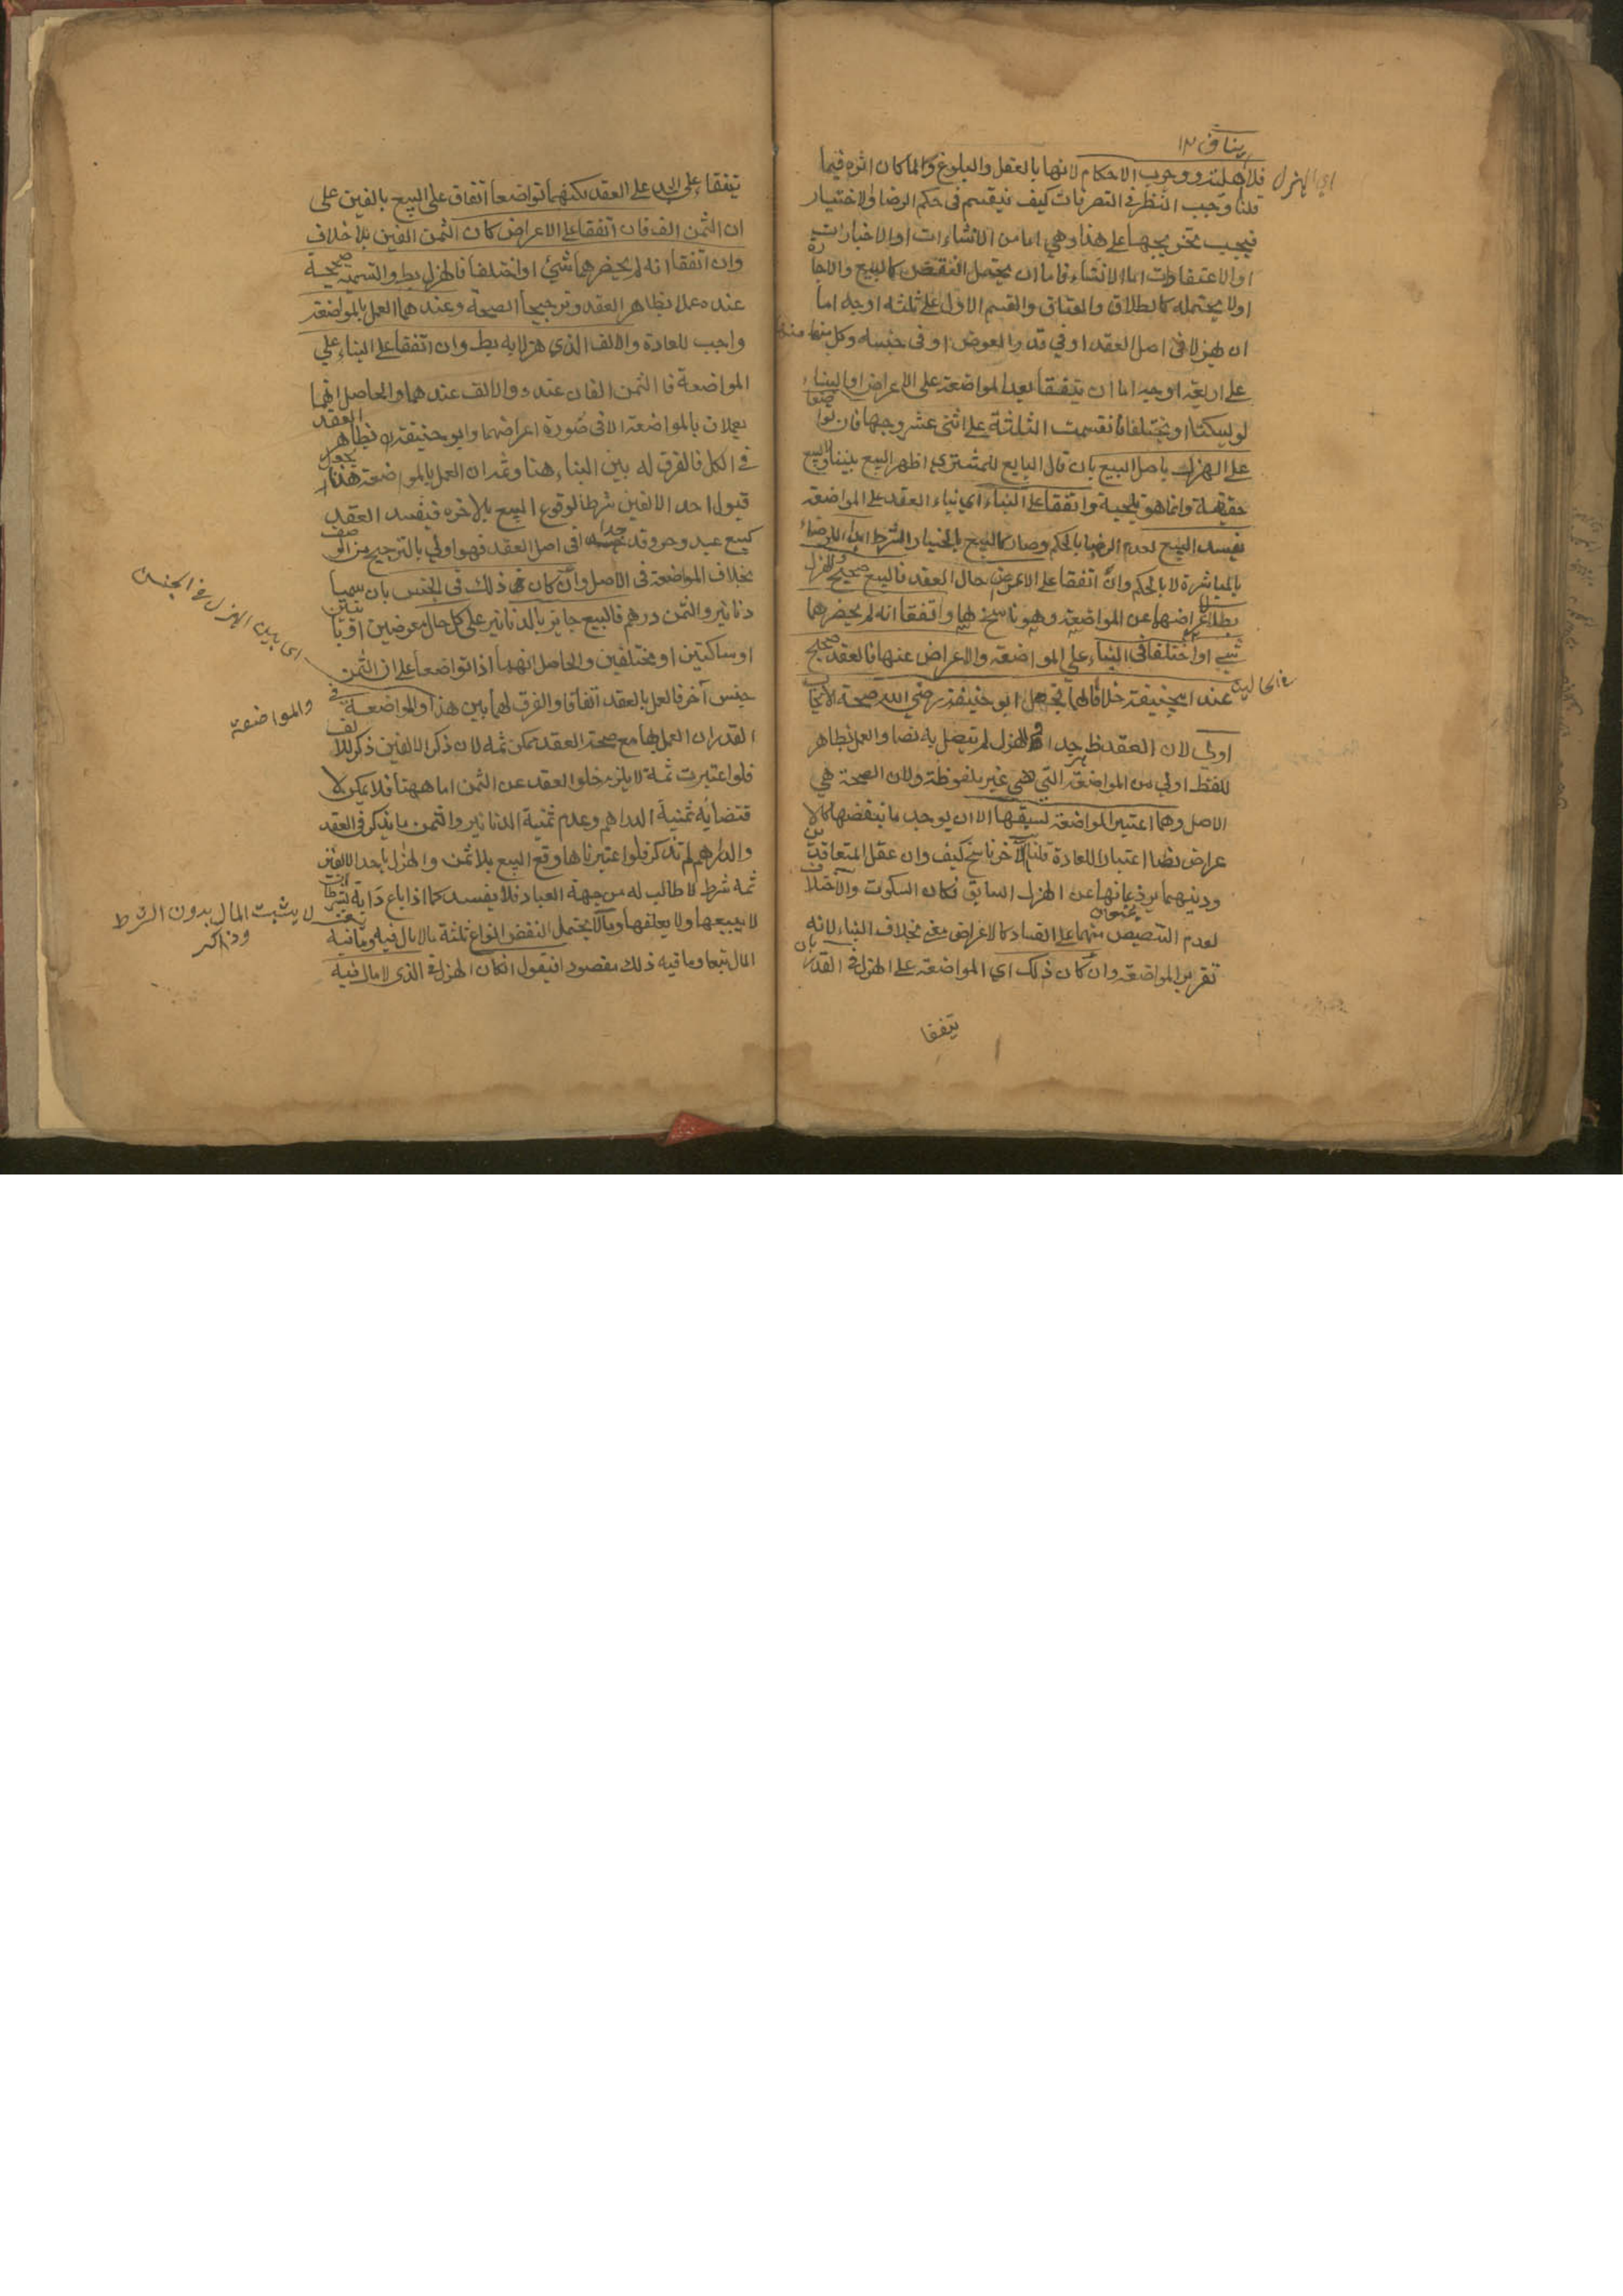 ينافي ١٢
اي الهزل
فلاهلية ووجوب الاحكام لانها بالعقل والبلوغ ولما كان اثره فيما
قلنا وجب النظر في التصرفات كيف ينقسم في حكم الرضا والاختيار
فيجب تخريجها على هذا وهي اما من الانشاءات او الاخبارات
او الاعتقادات اما الانشاء فاما ان يحتمل النقض كالبيع والاجارة
او لا يحتمله كالطلاق والعتاق والقسم الاول على ثلثة اوجه اما
ان يهزلا في اصل العقد او في قدر العوض او في جنسه وكل منها
على اربعة اوجه اما ان يتفقا بعد المواضعة على الاعراض او البناء
او يسكتا او يختلفا فانقسمت الثلثة على اثنى عشر وجها فان تواضعا
على الهزل باصل البيع بان قال البايع للمشتري اظهر البيع بيننا ولا بيع
حقيقة وانما هو تلجية واتفقا على البناء اي بناء العقد على المواضعة
يفسد البيع لعدم الرضا بالحكم وصار كالبيع بالخيار الشرط ابدا للرضاء
بالمباشرة لا بالحكم وان اتفقا على الاعراض حال العقد فالبيع صحيح والهزل
بطل لاعراضهما عن المواضعة وهو ناسخ لها واتفقا انه لم يحضرهما
شيء او اختلفا في البناء على المواضعة والاعراض عنها فالعقد صحيح
في الحالين
عند ابيحنيفة خلافا لهما فجعل ابو حنيفة رضي الله صحة الايجاب
اولى لان العقد ظهر جدا والهزل لم يتصل به نصا والعمل بظاهر
للفظ اولى من المواضعة التي هي غير ملفوظة ولان الصحة هي
الاصل وهما اعتبر المواضعة لسبقها الا ان يوجب ما ينقضها كالا
عراض نصا اعتبارا للعادة قلنا الآخر ناسخ كيف وان عقل المتعاقدين
ودينهما يرذعانهما عن الهزل السابق فكان السكوت والاختلاف
لعدم التنصيص منهما على الفساد كالاعراض بخلاف البناء لانه
تقرير المواضعة وان كان ذلك اي المواضعة على الهزل في القدر بان
يتفقا
يتفقا على الجد على العقد لكنهما تواضعا اتفاق على البيع بالفين على
ان الثمن الف فان اتفقا على الاعراض كان الثمن الفين بلا خلاف
وان اتفقا انه لم يحضرهما شئ او اختلفا فالهزل بط والتسمية صحيحة
عنده عملا بظاهر العقد وترجيحا الصحة وعندهما العمل بالمواضعة
واجب للعادة والالف الذي هزلا به بط وان اتفقا على البناء على
المواضعة فالثمن الفان عنده والالف عندهما والحاصل انهما
يعملان بالمواضعة الا في صورة اعراضهما وابو حنيفة بظاهر العقد
في الكل فالفرق له بين البناء هنا وثمه ان العمل بالمواضعة هنا يجعل
قبول احد الالفين شرطا لوقوع البيع بالاخره فيفسد العقد
كبيع عبد وحر وقد جدا في اصل العقد فهو اولى بالترجيح من الوصف
بخلاف المواضعة في الاصل وان كان ذلك في الجنس بان سميا
دنانير والثمن درهم فالبيع جايز بالدنانير على كل حال معرضين او بانيين
اي يريدان الهزل في الجنس
او ساكتين او مختلفين والحاصل انهما اذا تواضعا على ان الثمن
جنس آخر فالعمل بالعقد اتفاقا والفرق لهما بين هذا والمواضعة في
والمواضعة
القدر ان العمل بها مع صحة العقد ممكن ثمه لان ذكر الالفين ذكر للالف
فلو اعتبرت ثمة لا يلزم خلوا العقد عن الثمن اما ههنا فلا يمكن لا
قتضايه ثمنية الدراهم وعدم ثمنية الدنانير والثمن ما يذكر في العقد
والدراهم لم تذكر فلو اعتبرناها وقع البيع بلا ثمن والهزل باحد الالفين
ثمه شرط لا طالب له من جهة العباد فلا يفسد كما اذا باع دابة بشرط ان
لا يبيعها ولا يعلفها وما لا يحتمل النقض انواع ثلثة ما لا مال فيه وما فيه
لا يثبت المال بدون الشرط
وذاكر
المال تبعا وما فيه ذلك مقصودا فيقول ان كان الهزل في الذي لا مال فيه